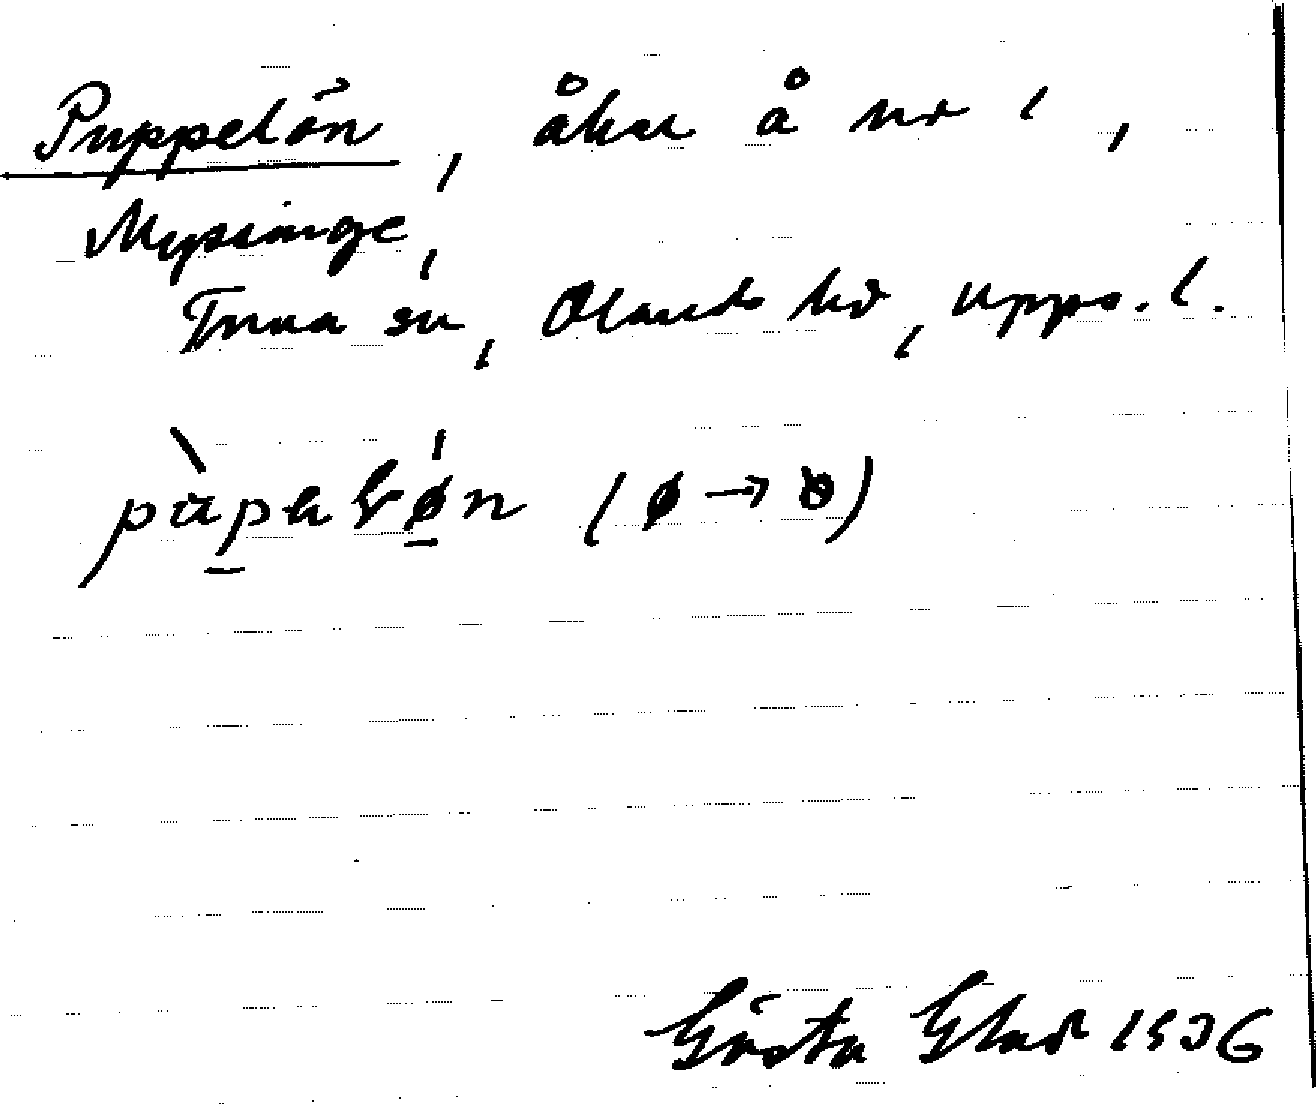 Puppelön, åker å nr 1,
Mysinge,
Tuna sn, Olands hd, Upps. l.
(ø → )
Gösta 1936